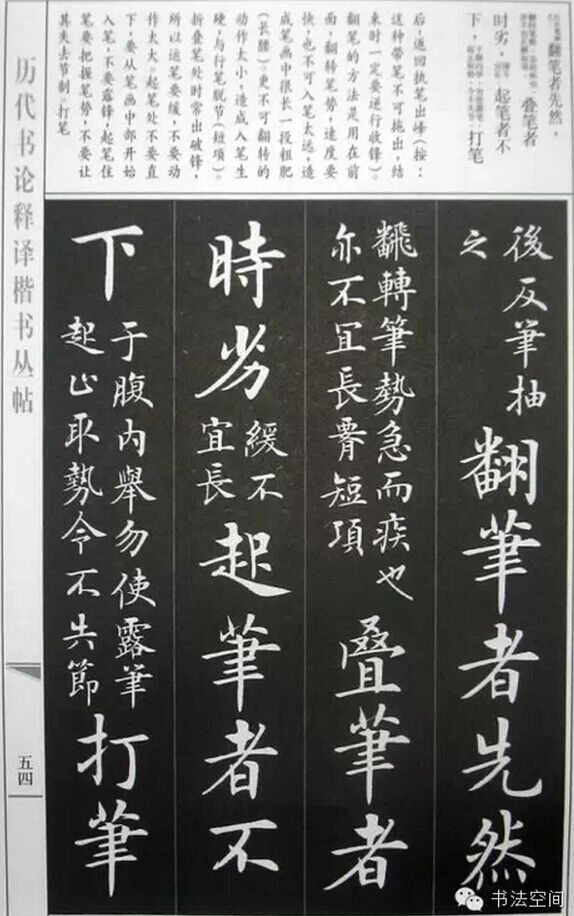 翻笔者先然，
叠笔者
时劣，起笔者不
下，打笔
后，返回执笔出峰（按：
这种带笔不可拖出，结
束时一定要逆行收锋）。
翻笔的方法是用在前
面，翻转笔势，速度要
快，也不可入笔太远，造
成笔画中很长一段粗肥
（长腰）。更不可翻转的
动作太小，造成入笔生
硬，与行笔脱节（短项）。
折叠笔处时常出破锋，
所以运笔要缓，不要动
作太大。起笔处不要直
下，要从笔画中部开始
入笔，不要露锋，起笔住
笔要把握笔势，不要让
其失去节制。打笔
後反筆抽
之
翻筆者先然
翻轉筆勢急而疾也
亦不冝長䏿短項
叠筆者
時劣
緩不
宜長
起筆者不
下
于腹内舉勿使露筆
起止取勢令不失節
打筆
历代书论释译楷书丛帖
五四
书法空间